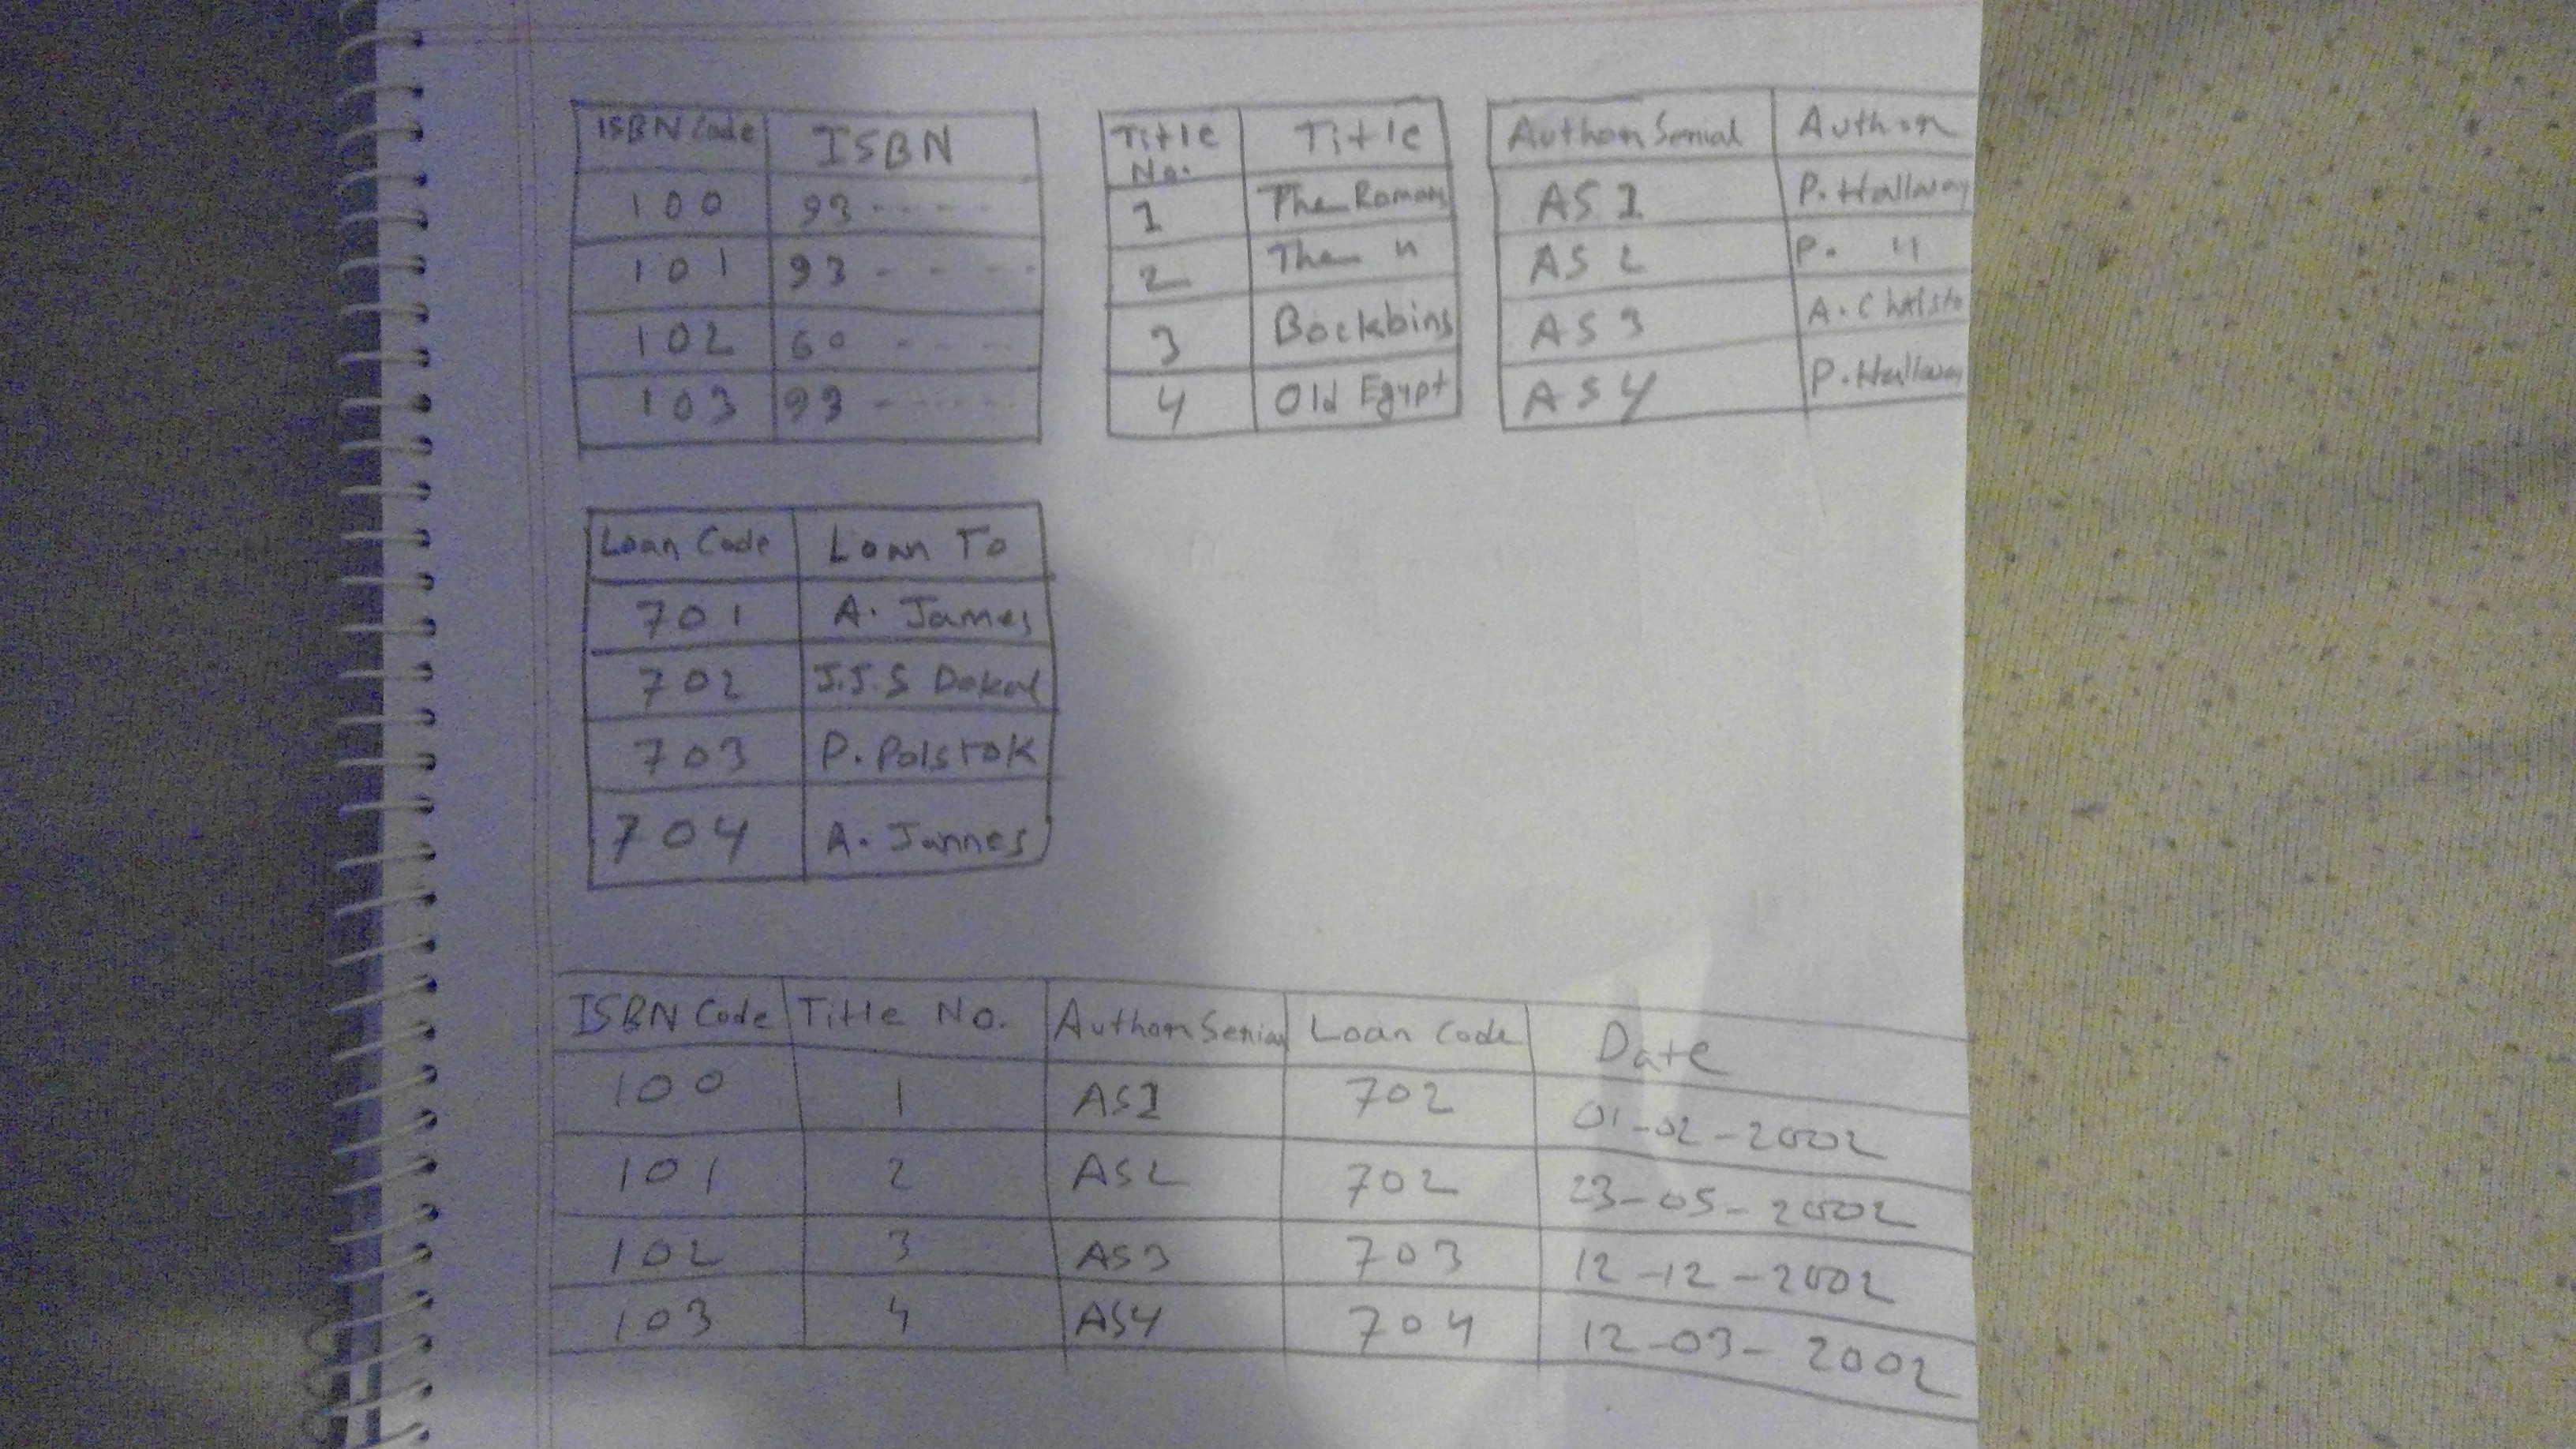 ISBN Code ISBN
100 93 - - - -
101 93 - - - -
102 60 - - - -
103 93 - - - - -
Title No. Title
1 The Romans
2 The 〃
3 Bockbins
4 Old Egypt
Author Serial Author
AS1 P. Hallaway
AS2 P. 〃
AS3 A.
AS4 P. Hallaway
Loan Code Loan To
701 A. James
702 J.J.S
703 P. Polstok
704 A. James
ISBN Code Title No. Author Serial Loan Code Date
100 1 AS1 702 01-02-2002
101 2 AS2 702 23-05-2002
102 3 AS3 703 12-12-2002
103 4 AS4 704 12-03-2002